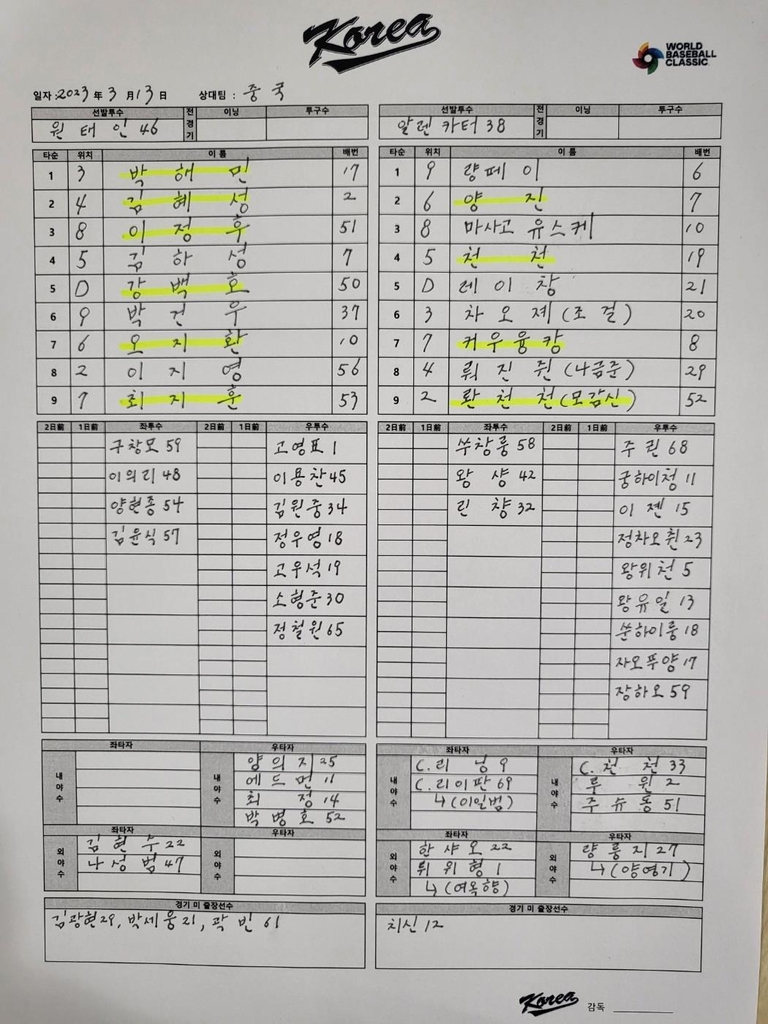 Korea
WORLD BASEBALL CLASSIC
일자 : 2023 年 3 月 13 日 상대팀 : 중국
선발투수 전경기 이닝 투구수
원태인 46
타순 위치 이름 배번
1 3 박해민 17
2 4 김혜성 2
3 8 이정후 51
4 5 김하성 7
5 D 강백호 50
6 9 박건우 37
7 6 오지환 10
8 2 이지영 56
9 7 최지훈 53
2日前 1日前 좌투수 2日前 1日前 우투수
구창모 59 고영표 1
이의리 48 이용찬 45
양현종 54 김원중 34
김윤식 57 정우영 18
고우석 19
소형준 30
정철원 65
좌타자 우타자
내야수 내야수 양의지 25
에드먼 11
최정 14
박병호 52
좌타자 우타자
외야수 김현수 22 외야수
나성범 47
경기 미 출장선수
김광현 29, 박세웅 21, 곽빈 61
선발투수 전경기 이닝 투구수
알렌카터 38
타순 위치 이름 배번
1 9 량페이 6
2 6 양진 7
3 8 마사고 유스케 10
4 5 천천 19
5 D 레이창 21
6 3 차오제 (조걸) 20
7 7 커우융캉 8
8 4 뤄진쥔 (나금준) 29
9 2 롼천천 (모감신) 52
2日前 1日前 좌투수 2日前 1日前 우투수
쑤창룽 58 주권 68
왕샹 42 궁하이청 11
린챵 32 이젠 15
정차오췬 23
왕위천 5
왕유일 13
쑨하이룽 18
자오푸양 17
장하오 59
좌타자 우타자
내야수 C.리닝 9 내야수 C.천천 33
C.리이판 69 루윈 2
↳(이일범) 주슈동 51
좌타자 우타자
외야수 한샤오 22 외야수 량룽지 27
뤼위형 1 ↳(양영기)
↳(여옥향)
경기 미 출장선수
치신 12
Korea 감독